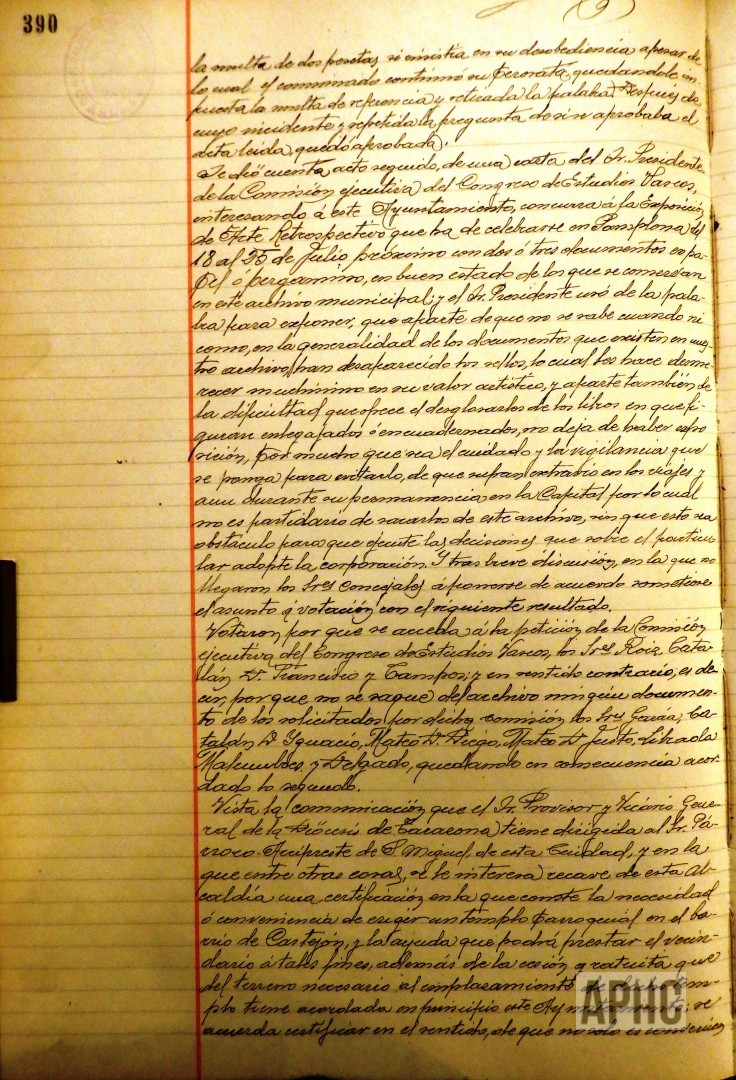 390
la multa de dos pesetas si insistia en su desobediencia apesar de
lo cual el conminado continuó su perorata, quedandole im-
puesta la multa de referencia y retirada la palabra. Después de
cuyo incidente y repetida la pregunta de si se aprobaba el
acta leida, quedó aprobada.
Se dió cuenta, acto seguido, de una carta del Sr. Presidente
de la Comisión ejecutiva del Congreso de Estudios Vascos,
interesando á este Ayuntamiento, concurra á la Exposición
de Arte Retrospectivo que ha de celebrarse en Pamplona del
18 al 25 de Julio próximo con dos ó tres documentos en pa-
pel ó pergamino, en buen estado de los que se conservan
en este archivo municipal; y el Sr. Presidente usó de la pala-
bra para exponer, que aparte de que no se sabe cuando ni
como, en la generalidad de los documentos que existen en nues-
tro archivo, han desaparecido los sellos, lo cual les hace desme-
recer muchísimo en su valor artístico, y aparte también de
la dificultad que ofrece el desglosarlos de los libros en que fi-
guran enlegajados ó encuadernados, no deja de haber expo-
sición, por mucho que sea el cuidado y la vigilancia que
se ponga para evitarlo, de que sufran extravio en los viajes y
aun durante su permanencia en la Capital por lo cual
no es partidario de sacarlos de este archivo, sin que esto sea
obstáculo para que ejecute las decisiones que sobre el particu-
lar adopte la corporación. Y tras breve discusión, en la que no
llegaron los Sres Concejales á ponerse de acuerdo sometiose
el asunto á votación con el siguiente resultado.
Votaron por que se acceda á la petición de la Comisión
ejecutiva del Congreso de Estudios Vascos, los Sres Ruiz, Cata-
lán D. Francisco y Campos; y en sentido contrario, es de-
cir, por que no se saque del archivo ningún documen-
to de los solicitados por dicha comisión, los Sres García, Ca-
talán D. Ygnacio, Mateo D. Diego, Mateo D. Justo,
Malumbres y Delgado, quedando en consecuencia acor-
dado lo segundo.
Vista la comunicación que el Sr. Provisor y Vicario Gene-
ral de la Diócesis de Tarazona tiene dirigida al Sr. Pá-
rroco Arcipreste de S. Miguel, de esta Ciudad, y en la
que entre otras cosas, se le interesa recave de esta Al-
caldía una certificación en la que conste la necesidad
ó conveniencia de erigir un templo parroquial en el ba-
rrio de Castejón, y la ayuda que podrá prestar el vecin-
dario á tales fines, además de la cesión gratuita que
del terreno necesario al emplazamiento de dicho tem-
plo tiene acordada en principio este Ayuntamiento; se
acuerda certificar en el sentido, de que no solo es convenien
APHC